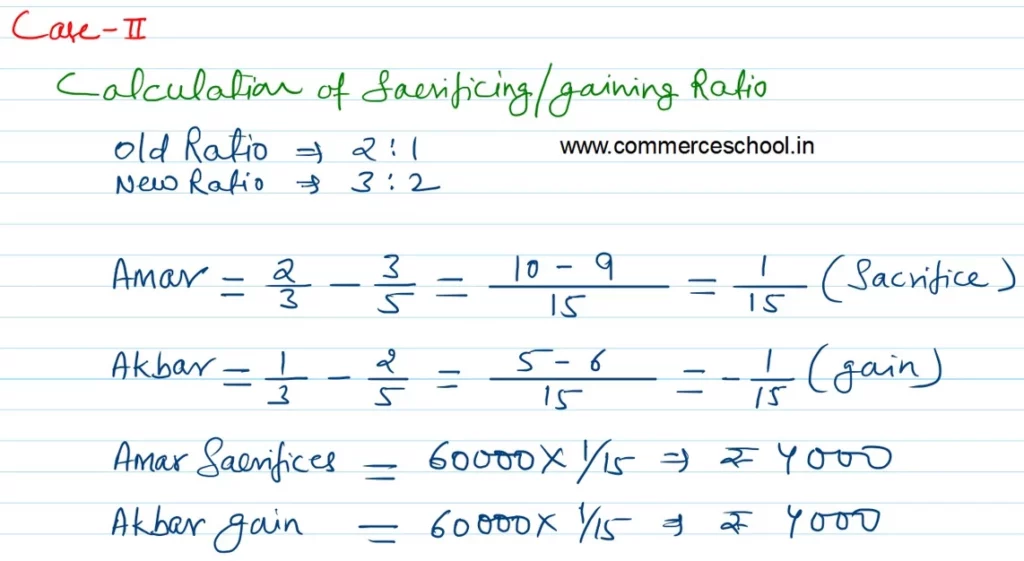 Case - II
Calculation of Sacrificing/gaining Ratio
Old Ratio ⇒ 2 : 1
www.commerceschool.in
New Ratio ⇒ 3 : 2
Amar = 2/3 - 3/5 = 10 - 9/15 = 1/15 (Sacrifice)
Akbar = 1/3 - 2/5 = 5 - 6/15 = - 1/15 (gain)
Amar Sacrifices = 60000 × 1/15 ⇒ ₹ 4000
Akbar gain = 60000 × 1/15 ⇒ ₹ 4000